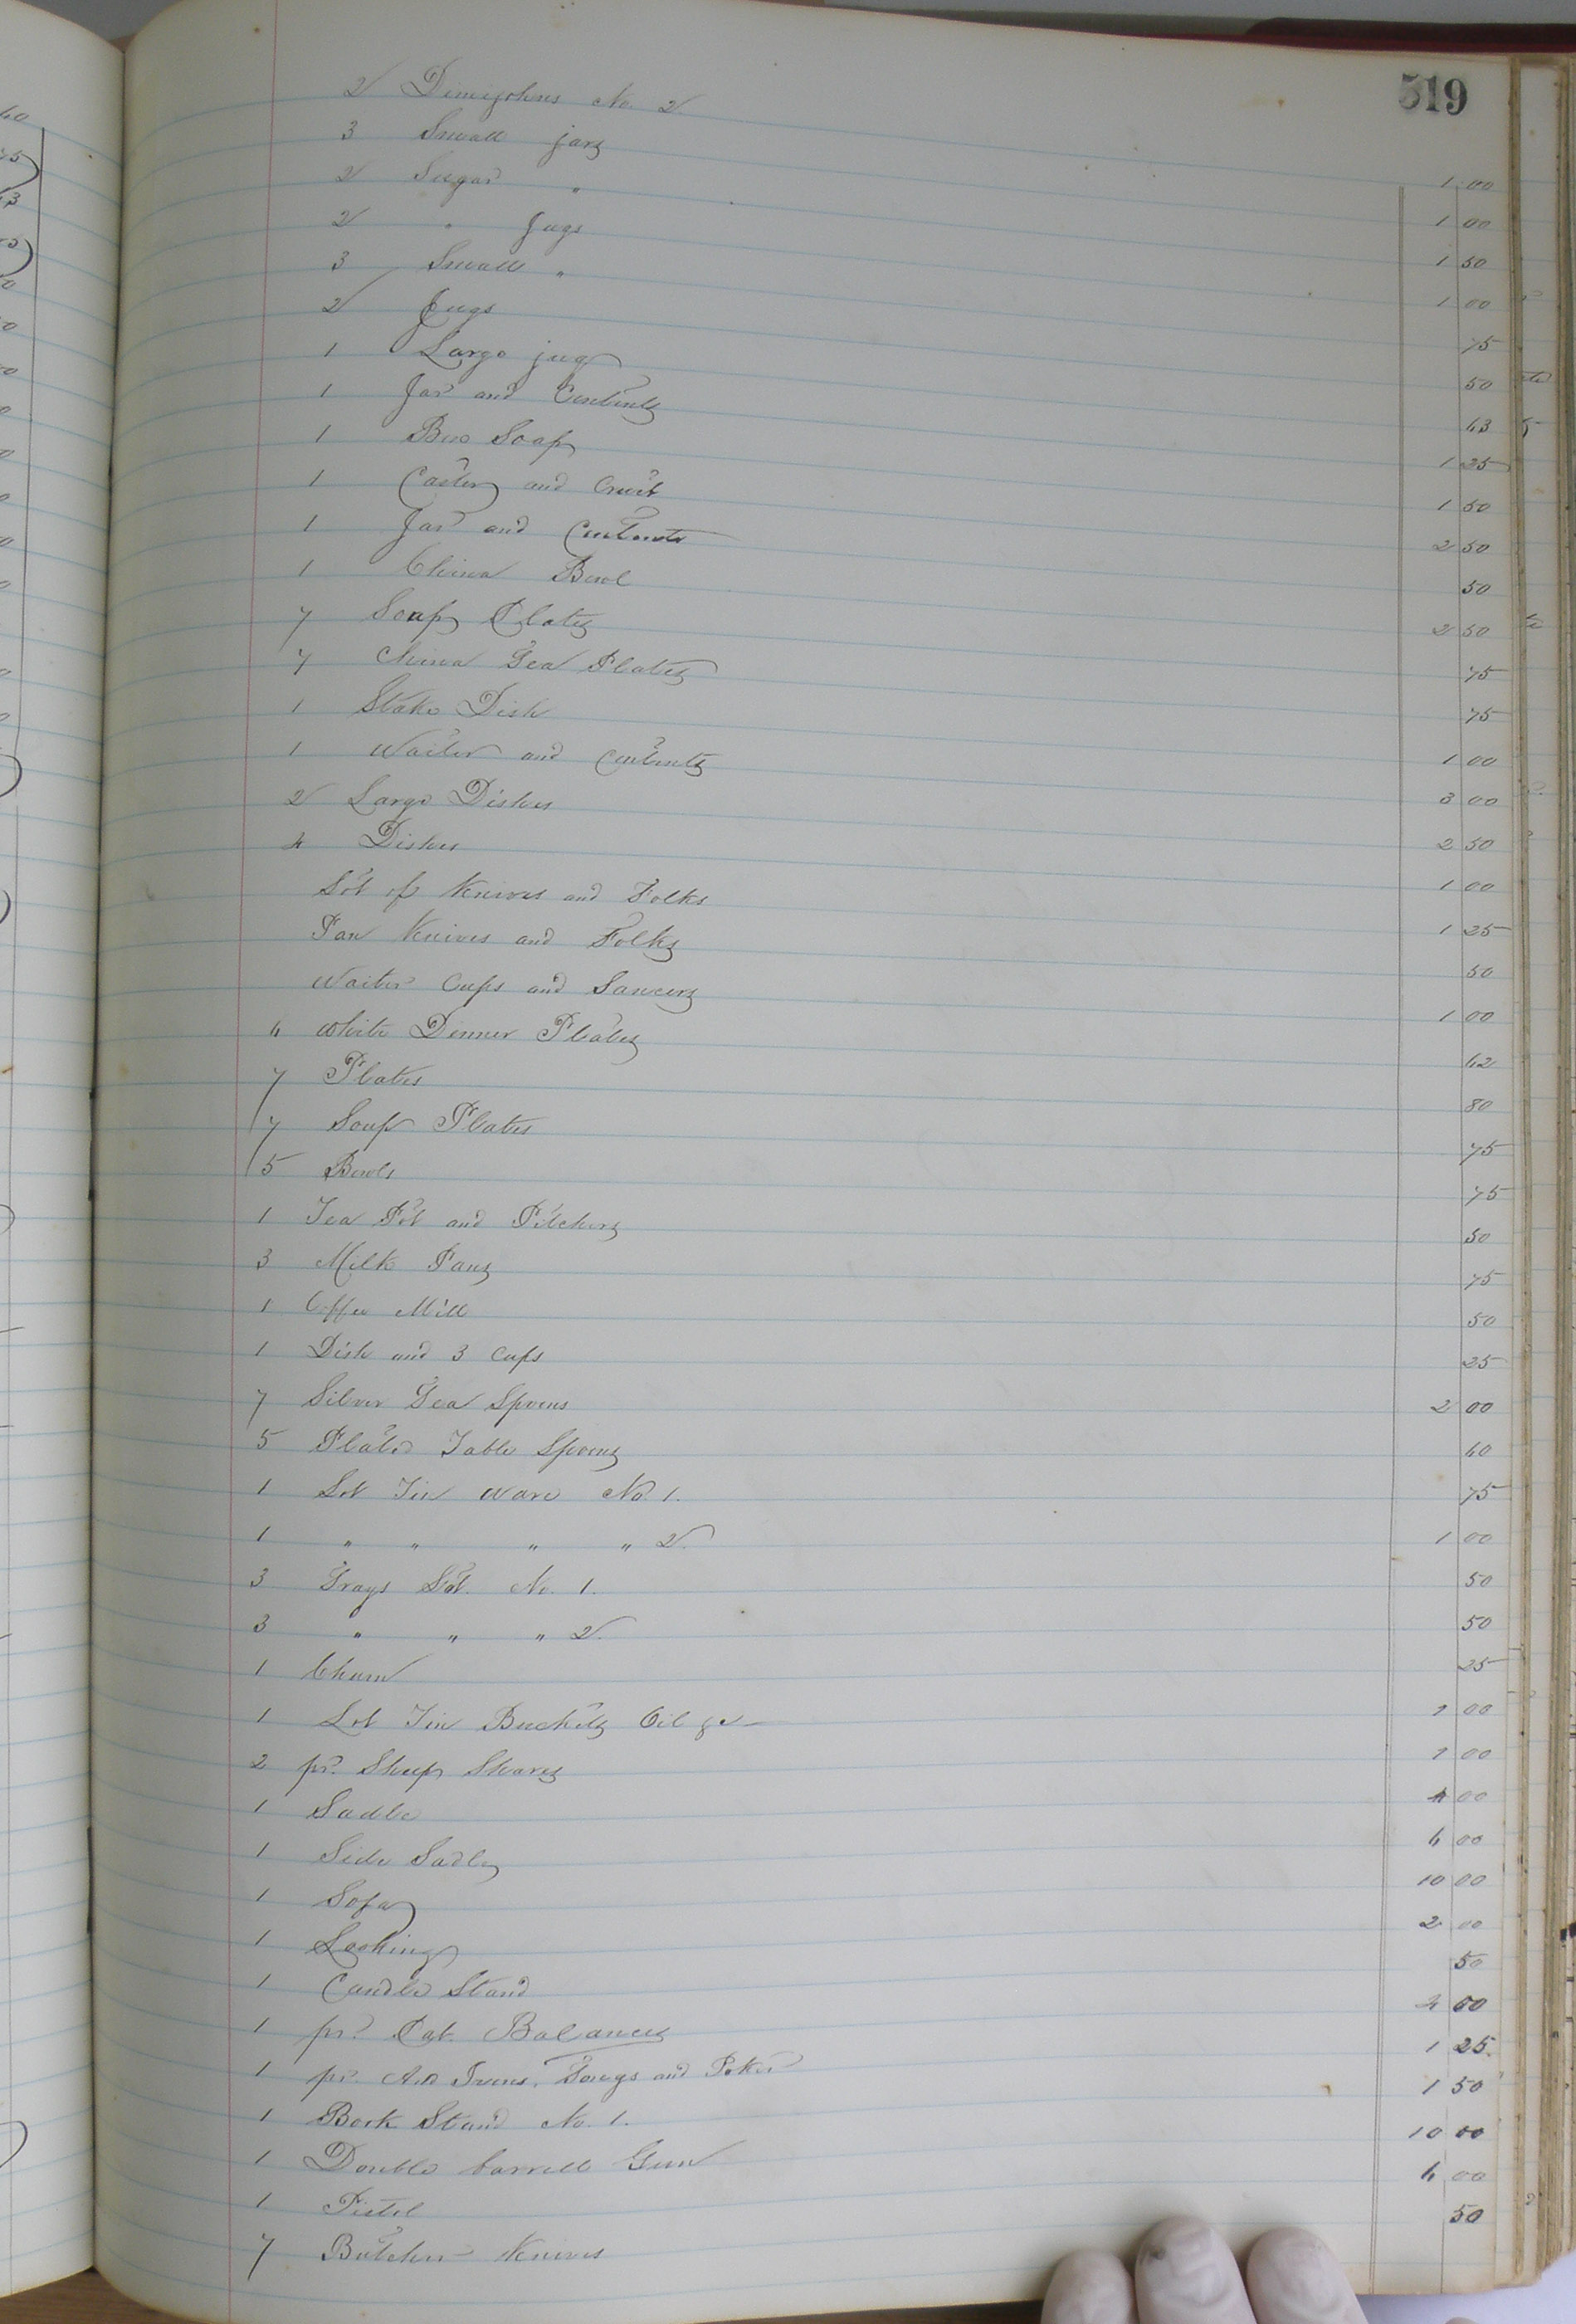 519
2 Demijohns No. 2 1 00
3 Small jars 1 00
2 Sugar " 1 50
2 " Jugs 1 00
3 Small " 75
2 Jugs 50
1 Large jug 63
1 Jar and Contents 1 25
1 Box Soap 1 50
1 Castor and Cruit 2 50
1 Jar and Contents 50
1 China Bowl 2 50
7 Soap Plates 75
7 China Tea Plates 75
1 Stake Dish 1 00
1 Waiter and Contents 3 00
2 Large Dishes 2 50
4 Dishes 1 00
Lot of Knives and Folks 1 25
Pan Knives and Folks 50
Waiter Cups and Saucers 1 00
6 White Dinner Plates 62
7 Plates 80
7 Soup Plates 75
5 Bowls 75
1 Tea Pot and Pitchers 50
3 Milk Pans 75
1 Coffee Mill 50
1 Dish and 3 Cups 25
7 Silver Tea Spoons 2 00
5 Plated Table Spoons 60
1 Lot Tin Ware No. 1. 75
1 " " " " 2. 1 00
3 Trays Lot. No. 1. 50
3 " " " 2. 50
1 Churn 25
1 Lot Tin Buckets Oil &c 1 00
2 pr. Sheep Shares 1 00
1 Sadle 4 00
1 Side Sadle 6 00
1 Sofa 10 00
1 Looking 2 00
1 Candle Stand 50
1 pr. Pat. Balances 4 00
1 pr. And Irons, Tongs and Poker 1 25.
1 Book Stand No. 1. 1 50
1 Double barrell Gun 10 00
1 Pistol 6 00
7 Butcher Knives 50